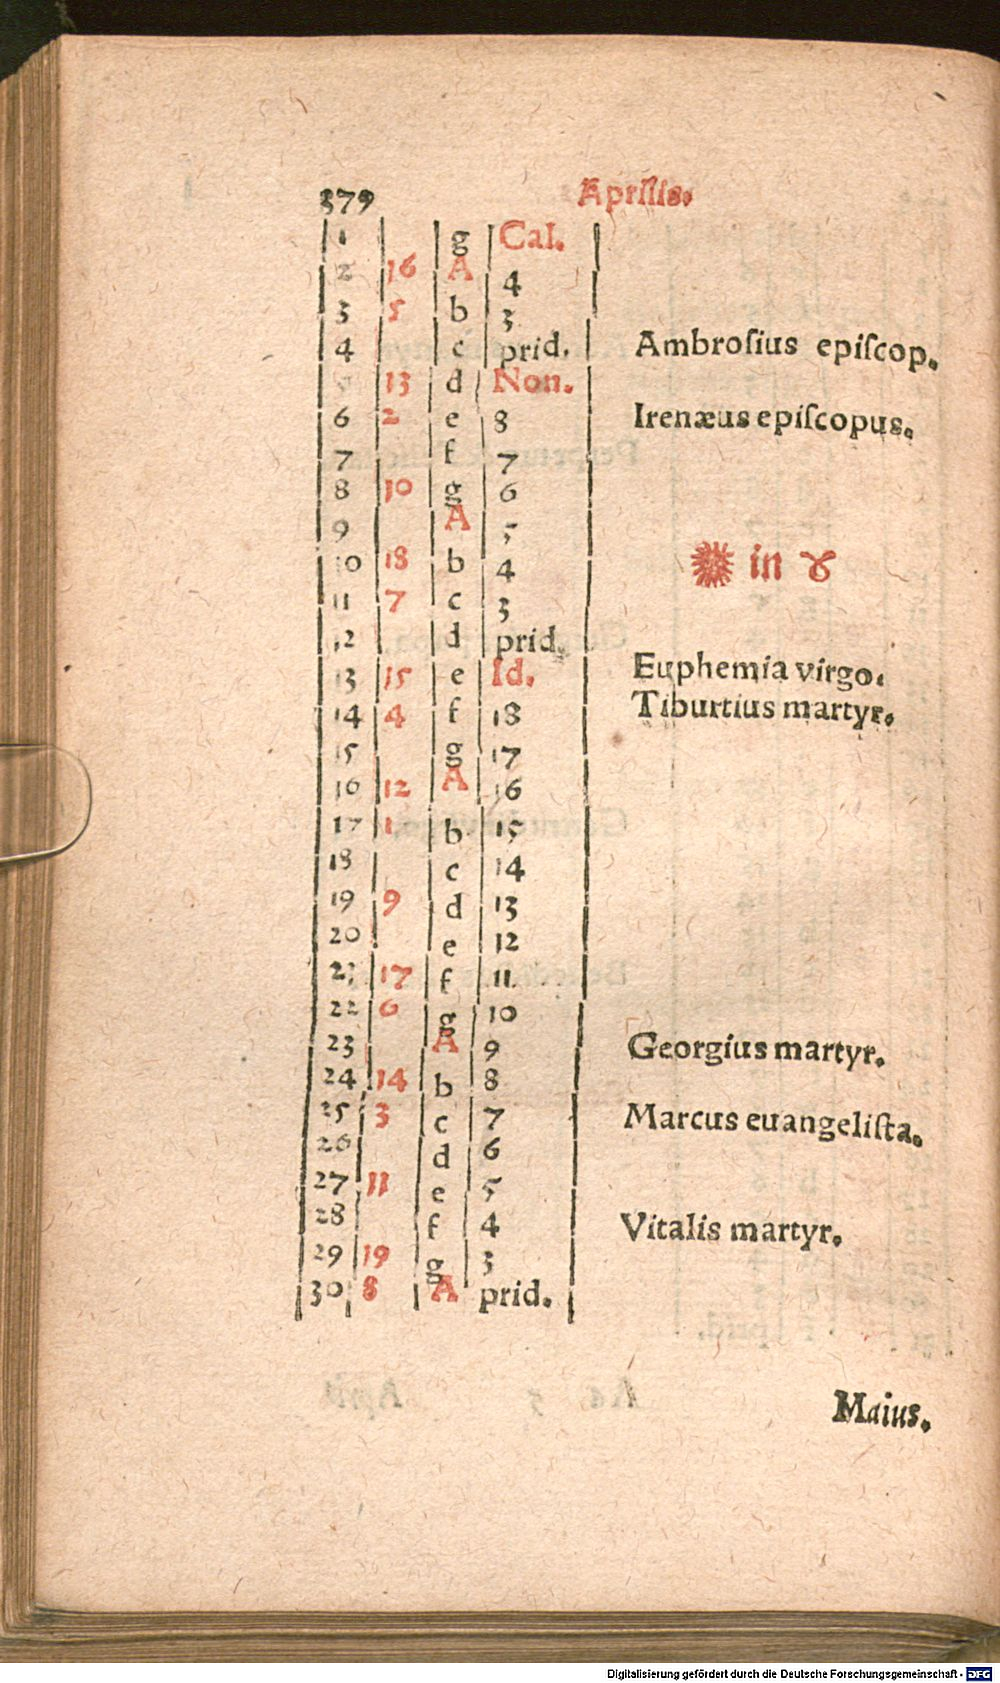 379 Aprilis.
1 g Cal.
2 16 A 4
3 5 b 3
4 c prid. Ambroſius epiſcop.
13 d Non.
6 2 e 8 Irenæus epiſcopus.
7 f 7
8 10 g 6
9 A 5
10 18 b 4 in ♉
11 7 c 3
12 d prid.
13 15 e Id. Euphemia virgo.
14 4 f 18 Tiburtius martyr.
15 g 17
16 12 A 16
17 1 b 15
18 c 14
19 9 d 13
20 e 12
21 17 f 11
22 6 g 10
23 A 9 Georgius martyr.
24 14 b 8
25 3 c 7 Marcus euangeliſta.
26 d 6
27 11 e 5
28 f 4 Vitalis martyr.
29 19 g 3
30 8 A prid.
Maius.
Digitalisierung gefördert durch die Deutsche Forschungsgemeinschaft - DFG